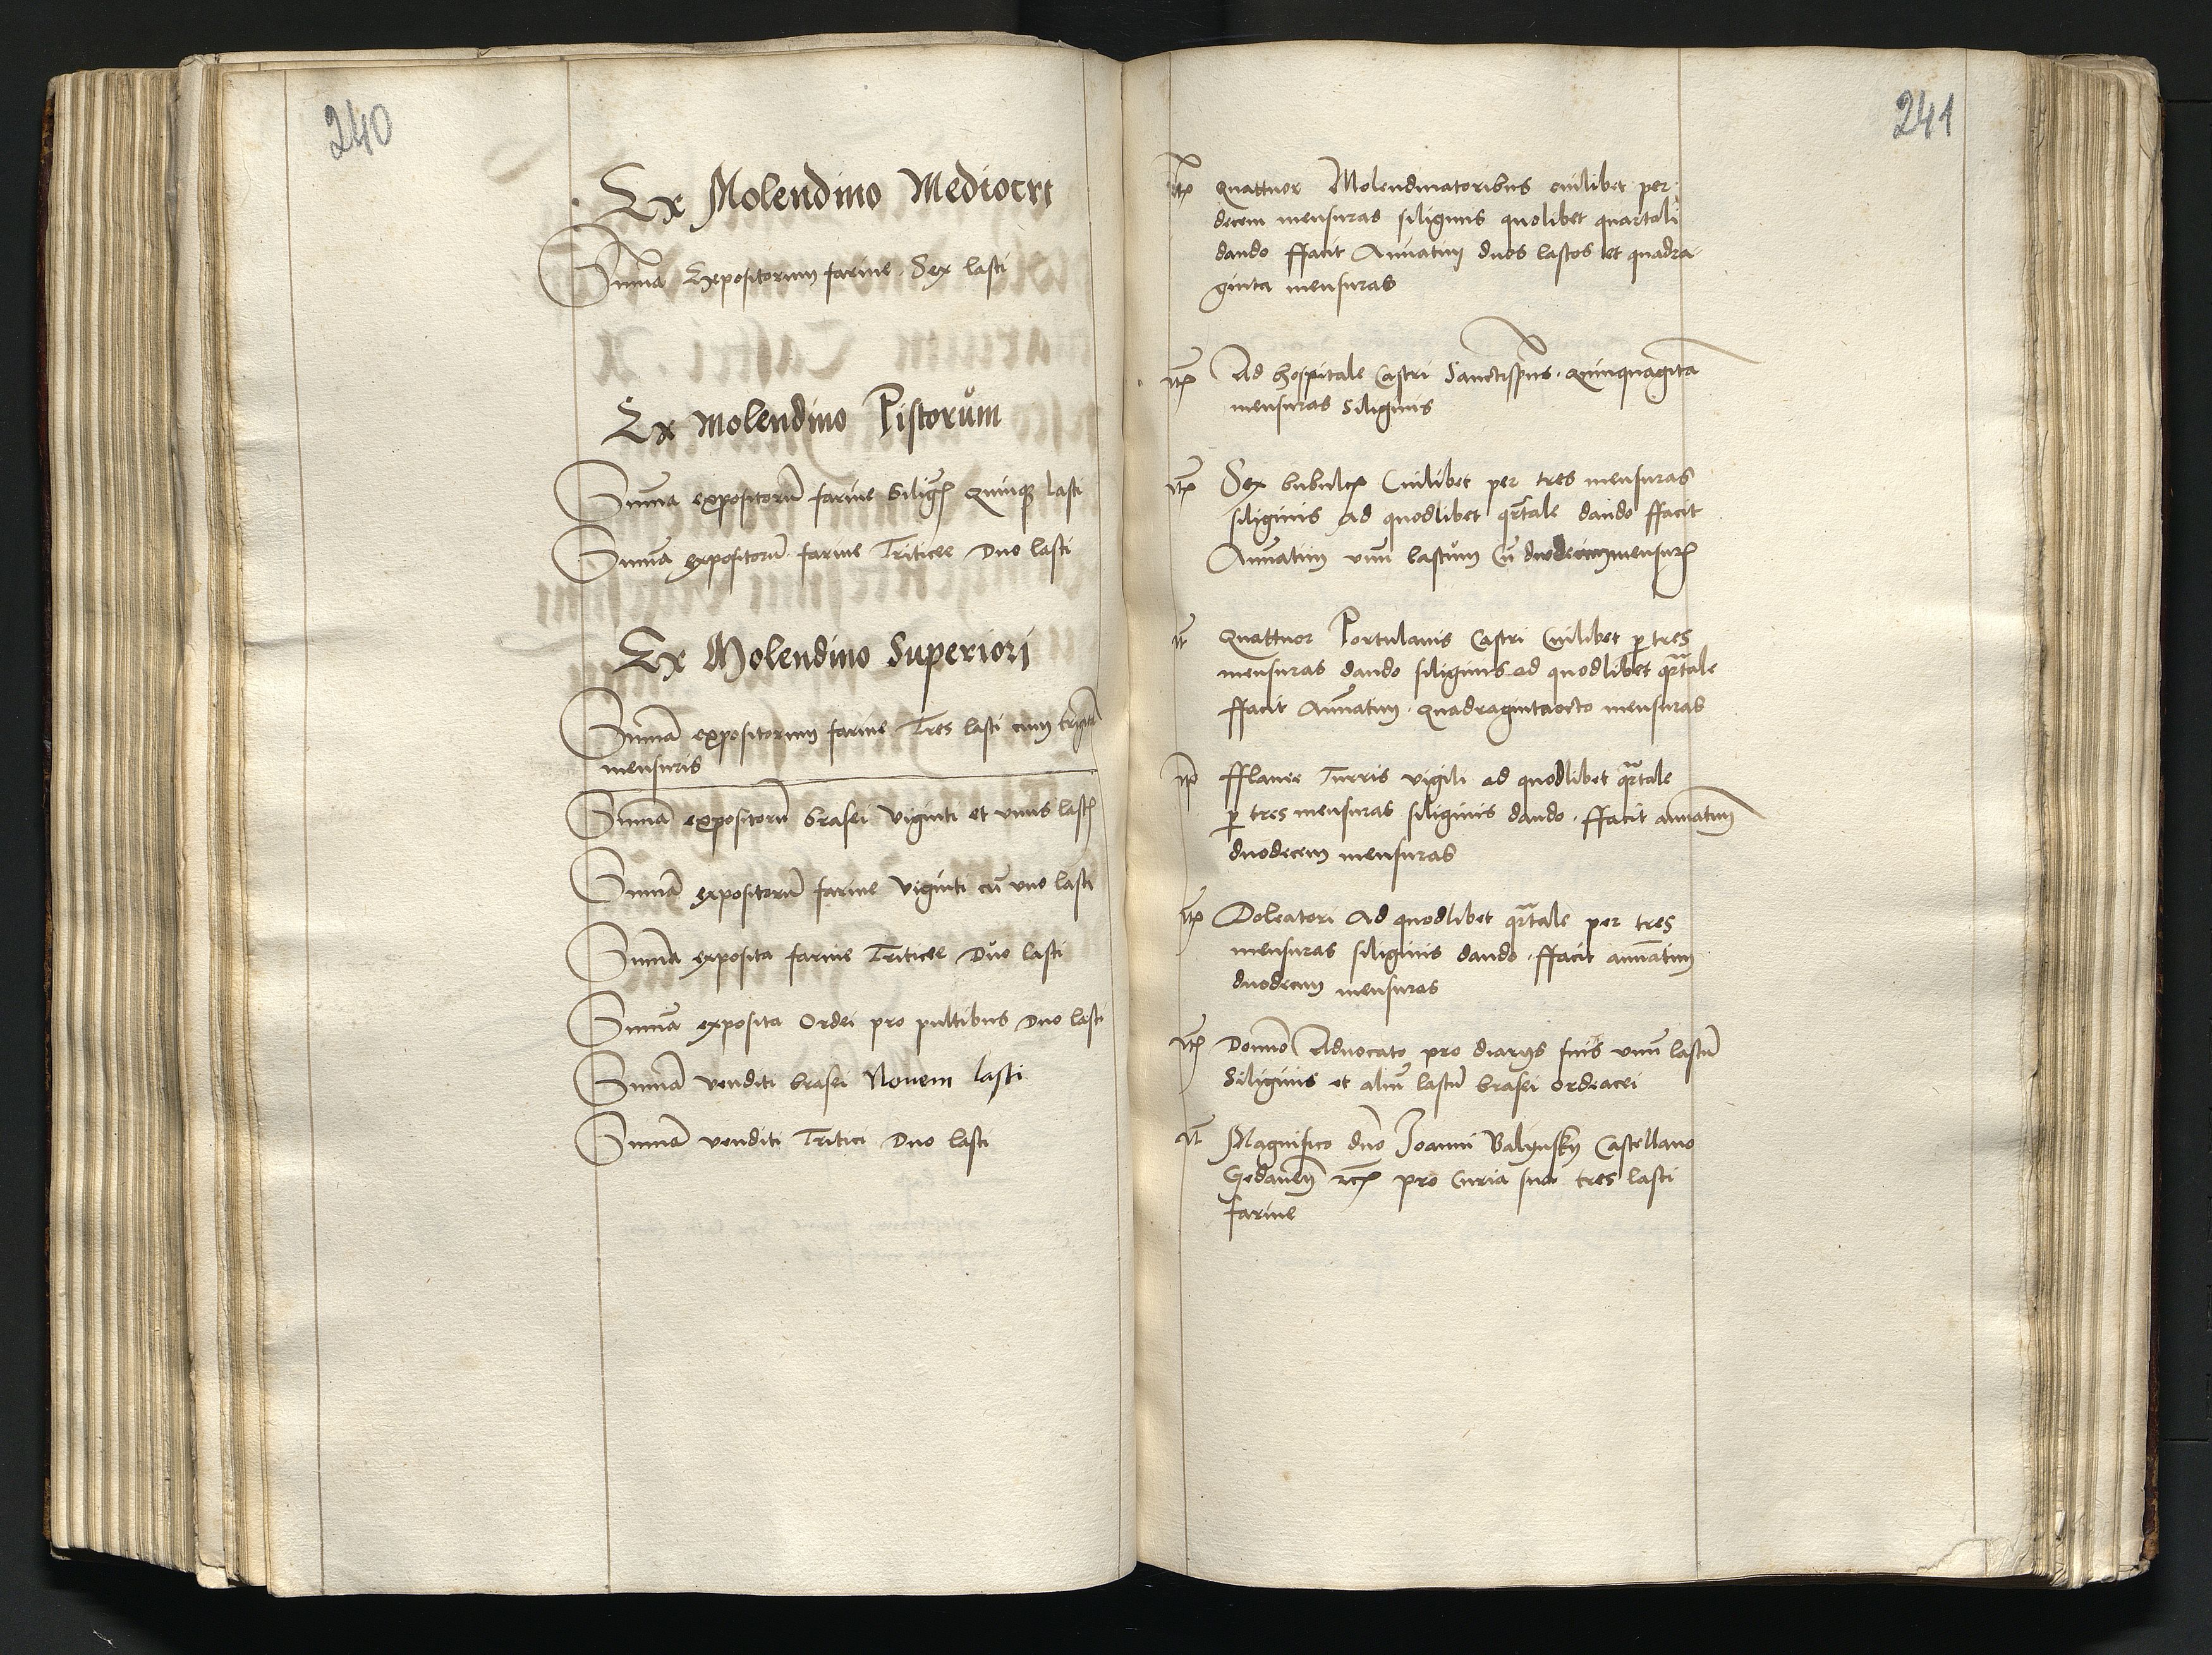 240
Ex Molendino Mediocri
Summa Expositorum farine. Sex lasti
Ex molendino Pistorům
Summa expositorū farine Silig quinq lasti
Summa expositorū farine Triticee Duo lasti
Ex Molendino Superiori
Summa expositorum farine Tres lasti cum triginta
mensuris
Summa expositorū brasei viginti et unus last
Summa expositorū farine viginti cū uno lasti
Summa exposita farine Triticee Duo lasti
Summa exposita Ordei pro pultibus Duo lasti
Summa venditi brasei Novem lasti
Summa venditi Tritici Duo lasti
241
Ite quattuor Molendinatoribus cuilibet per
decem mensuras siliginis quolibet quartali
dando ffacit Annuatim duos lastos et quadra-
ginta mensuras
Ite Ad hospitale Castri Sanctispūs. quinquaginta
mensuras Siliginis
Ite Sex bubulc Cuilibet per tres mensuras
siliginis ad quodlibet qrtale dando ffacit
Annuatim unū lastum Cū duodecim mensur
It quattuor Portulanis Castri Cuilibet p tres
mensuras dando siliginis ad quodlibet qrtale
ffacit Annuatim. quadragintaocto mensuras
Ite fflavee Turris vigili ad quodlibet qrtale
p tres mensuras siliginis dando. ffacit annuatim
duodecem mensuras
Ite Doleatori Ad quodlibet qrtale per tres
mensuras siliginis dando. ffacit annuatim
duodecim mensuras
Ite Domīo Advocato pro diarijs suis unū lastū
Siliginis et aliū lastū brasei ordeacei
It Magnifico dno Joanni Balijnskij Castellano
Gedanen etc pro Curia sua tres lasti
farine